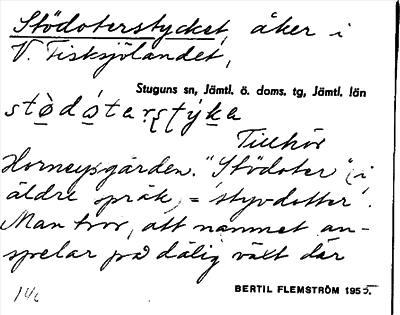 Stödoterstycket, åker i
V. Fisksjölandet,
Stuguns sn, Jämtl. ö. doms. tg, Jämtl. län
Tillhör
Horneysgården. "Stödoter" (i
äldre språk) = 'styvdotter'.
Man tror, att namnet an-
spelar på dålig växt där
1/6
BERTIL FLEMSTRÖM 1955.